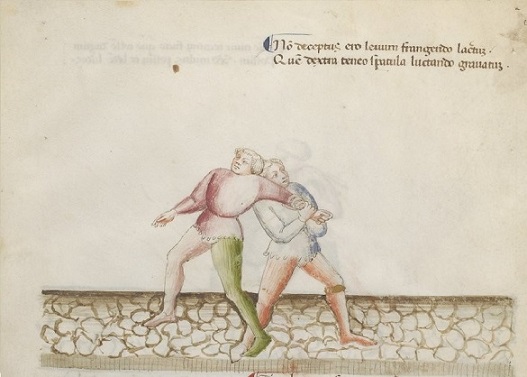 Nō deceptus ero levum frangendo lac̄tum.
Quē dextra teneo spatula luctando gravatum.